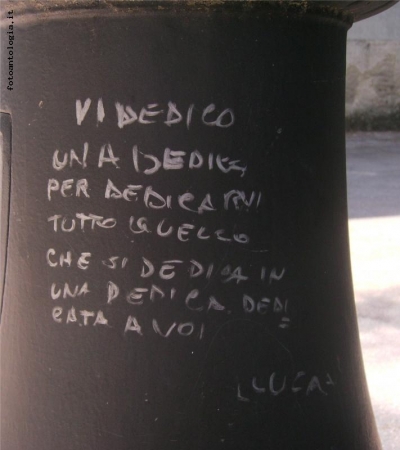 fotoantologia.it
VI DEDICO
UNA DEDICA
PER DEDICARVI
TUTTO QUELLO
CHE SI DEDICA IN
UNA DEDICA DEDI
CATA A VOI =
LUCA